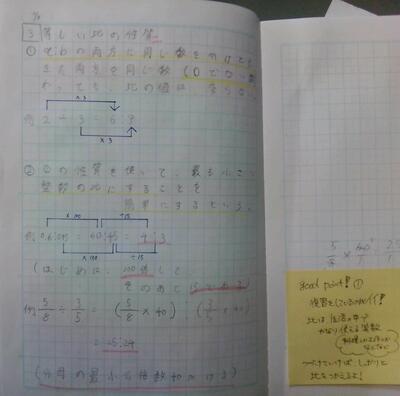 3 等しい比の性質
① 比の両方に同じ数をかけても、
また両方を同じ数(0でない数)
わっても、比の値は 変わらない
×3
例 2 : 3 = 6 : 9
×3
② ①の性質を使って、最も小さい
整数の比にすることを
簡単にするという。
×100 ÷15
例 0.6:0.45 = 60:45 = 4:3
×100 ÷15
(はじめに 100倍して
そのあと 15でわる)
例 5/8 ÷ 3/5 = (5/8 × 40) : (3/5 × 40)
= 25:24
(分母の最小公倍数40をかける)
Good point! ①
復習をしているのがイイ!
比は生活の中で
かなり使える算数
つづけていけば、しっかりと
比をつかえるよ!